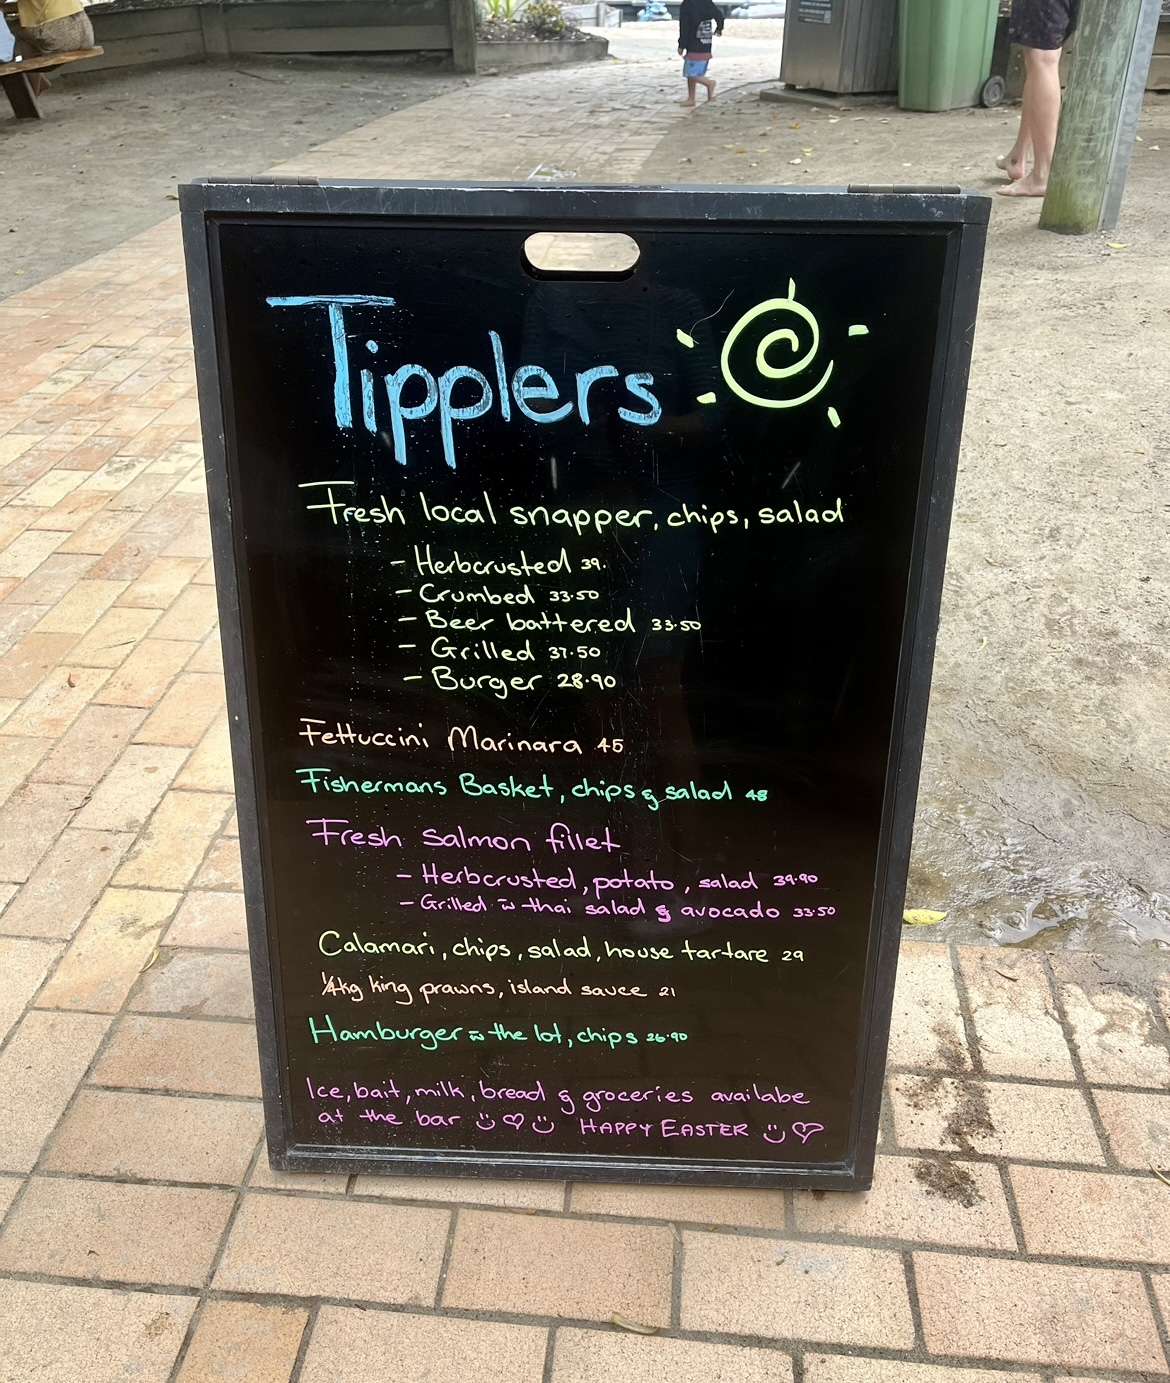 Tipplers
Fresh local snapper, chips, salad
- Herbcrusted 39.
- Crumbed 33.50
- Beer battered 33.50
- Grilled 37.50
- Burger 28.90
Fettuccini Marinara 45
Fishermans Basket, chips & salad 48
Fresh salmon fillet
- Herbcrusted, potato, salad 39.90
- Grilled w thai salad & avocado 33.50
Calamari, chips, salad, house tartare 29
1/4kg king prawns, island sauce 21
Hamburger w the lot, chips 26.90
Ice, bait, milk, bread & groceries availabe
at the bar HAPPY EASTER